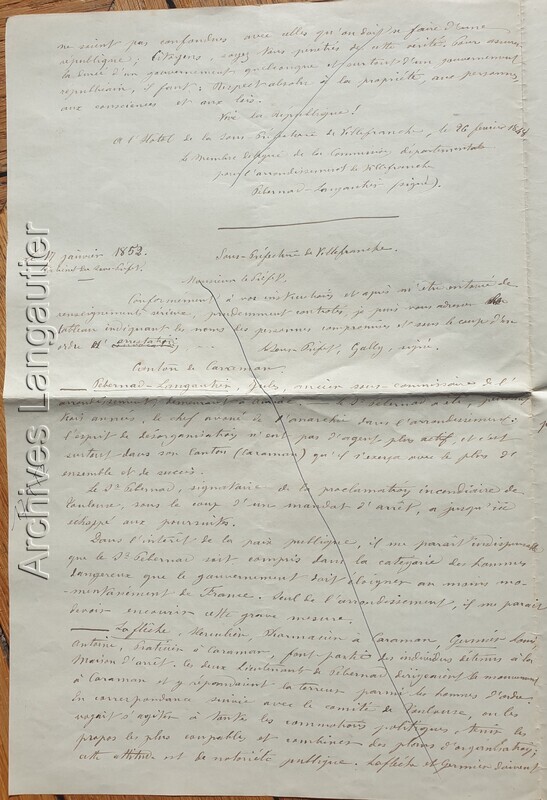 ne soient pas confondues avec celles qu'on doit se faire d'une
république; Citoyens, soyez tous pénétrés de cette vérité. Pour assurer
la durée d'un gouvernement quelconque et surtout d'un gouvernement
républicain, il faut: Respect absolu à la propriété, aux personnes
aux consciences et aux lois.
Vive la république!
A l'Hôtel de la Sous-Préfecture de Villefranche, le 26 février
Le Membre délégué de la Commission départementale
pour l'arrondissement de Villefranche
Pibernad-Langautier signé).
17 janvier 1852.
Sous-Préfecture de Villefranche.
Monsieur le Préfet,
Conformément à vos instructions et après m'être entouré de
renseignements précis, prudemment contrôlés, je puis vous adresser
tableau indiquant les noms des personnes compromises et sous le coup d'un
ordre d'arrestation;
Le Sous-Préfet, Gally, signé.
Canton de Caraman.
Pibernad-Langautier, Jules, ancien sous-commissaire de l'
arrondissement, demeurant à Le Sr Pibernad a été, pendant
trois années, le chef avoué de l'anarchie dans l'arrondissement;
l'esprit de désorganisation n'eut pas d'agent plus actif et c'est
surtout dans son canton (Caraman) qu'il l'exerça avec le plus d'
ensemble et de succès.
Le Sr Pibernad, signataire de la proclamation incendiaire de
Toulouse, sous le coup d'un mandat d'arrêt, a jusqu'ici
échappé aux poursuites.
Dans l'intérêt de la paix publique, il me paraît indispensable
que le Sr Pibernad soit compris dans la catégorie des hommes
dangereux que le gouvernement doit éloigner au moins mo-
mentanément de France. Seul de l'arrondissement, il me paraît
devoir encourir cette grave mesure.
Laflèche, Pharmacien à Caraman, Garmier Louis,
Antoine, Praticien à Caraman, font partie des individus détenus à la
Maison d'arrêt. Ces deux lieutenants de Pibernad dirigeaient le mouvement
à Caraman et y répandaient la terreur parmi les hommes d'ordre.
En correspondance suivie avec le comité de Toulouse, on les
voyait s'agiter à toutes les commotions politiques, tenir les
propos les plus coupables et combiner des plans d'organisation;
cette attitude est de notoriété publique. Laflèche et Garmier doivent
Archives Langautier